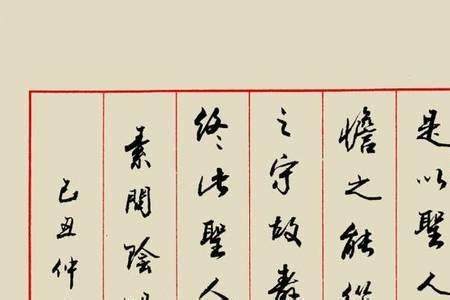 是以聖人
憺之能從
之守故壽
終此聖人
素問陰
己丑仲